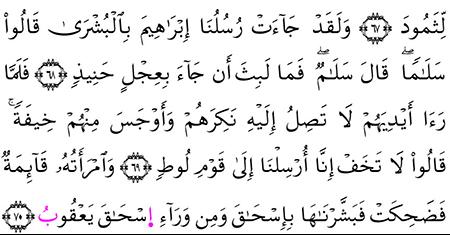 لِّثَمُودَ ﴿٦٧﴾ وَلَقَدْ جَآءَتْ رُسُلُنَا إِبْرَاهِيمَ بِالْبُشْرَى قَالُوا۟
سَلَـٰمًاۖ قَالَ سَلَـٰمٌۖ فَمَا لَبِثَ أَن جَآءَ بِعِجْلٍ حَنِيذٍ ﴿٦٨﴾ فَلَمَّا
رَءَا أَيْدِيَهُمْ لَا تَصِلُ إِلَيْهِ نَكِرَهُمْ وَأَوْجَسَ مِنْهُمْ خِيفَةًۚ
قَالُوا۟ لَا تَخَفْ إِنَّا أُرْسِلْنَا إِلَىٰ قَوْمِ لُوطٍ ﴿٦٩﴾ وَامْرَأَتُهُۥ قَآئِمَةٌ
فَضَحِكَتْ فَبَشَّرْنَـٰهَا بِإِسْحَـٰقَ وَمِن وَرَآءِ اِ۬سْحَـٰقَ يَعْقُوبُ ﴿٧٠﴾